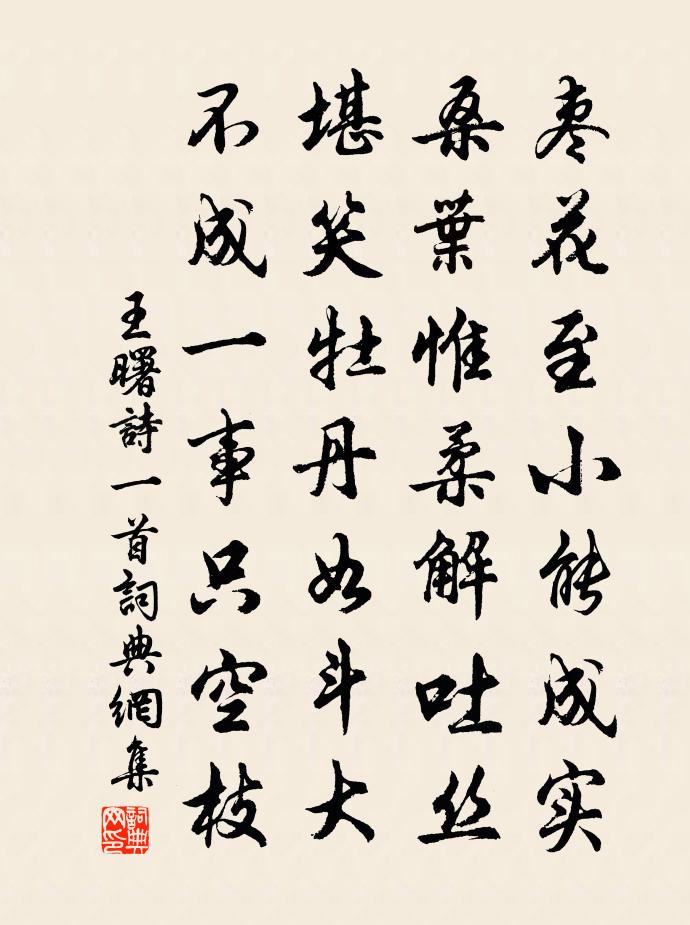 枣花至小能成实
桑葉惟柔解吐丝
堪笑牡丹如斗大
不成一事只空枝
王曙詩一首詞典網集
詞典网印